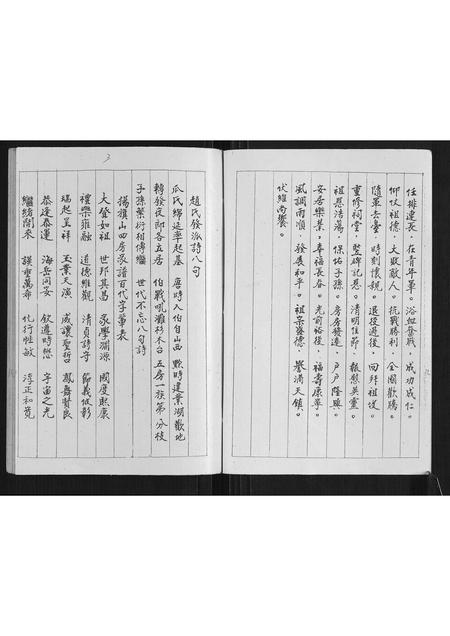 任排連長。在青年軍。浴血奮戰。成功成仁。
仰仗祖德。大敗敵人。抗戰勝利。全國歡騰。
隨軍去臺。時刻懷親。退役還後。回拜祖坟。
重修祠堂。豎碑記恩。清明佳節。報慰英靈。
祖恩浩蕩。保佑子孫。房房發達。戶戶隆興。
安居樂業。幸福長春。光前裕後。福壽康寧。
風調雨順。發展和平。祖宗盛德。譽滿天鎮。
伏維尚饗。
3
趙氏發派詩八句
瓜氏綿延率起基 唐時入伯自山西 黔時建業湖歡地
轉發夜郎各五居 伯戰吼灘杉木台 五房一族第分枝
子孫葉衍相傳繼 世代不忘八句詩
揚旗山四房家譜百代字輩表
大登如祖 世邦其昌 家學淵源 國度熙康
禮樂雍融 道德維觀 清貞詩守 節義成彰
瑞起呈祥 玉業天潢 咸讓聖哲 鳳舞賢良
恭逢泰運 海岳同安 欽遵時憲 宇宙之光
繼緒開來 謨垂萬希 化行性敏 淳正和寬